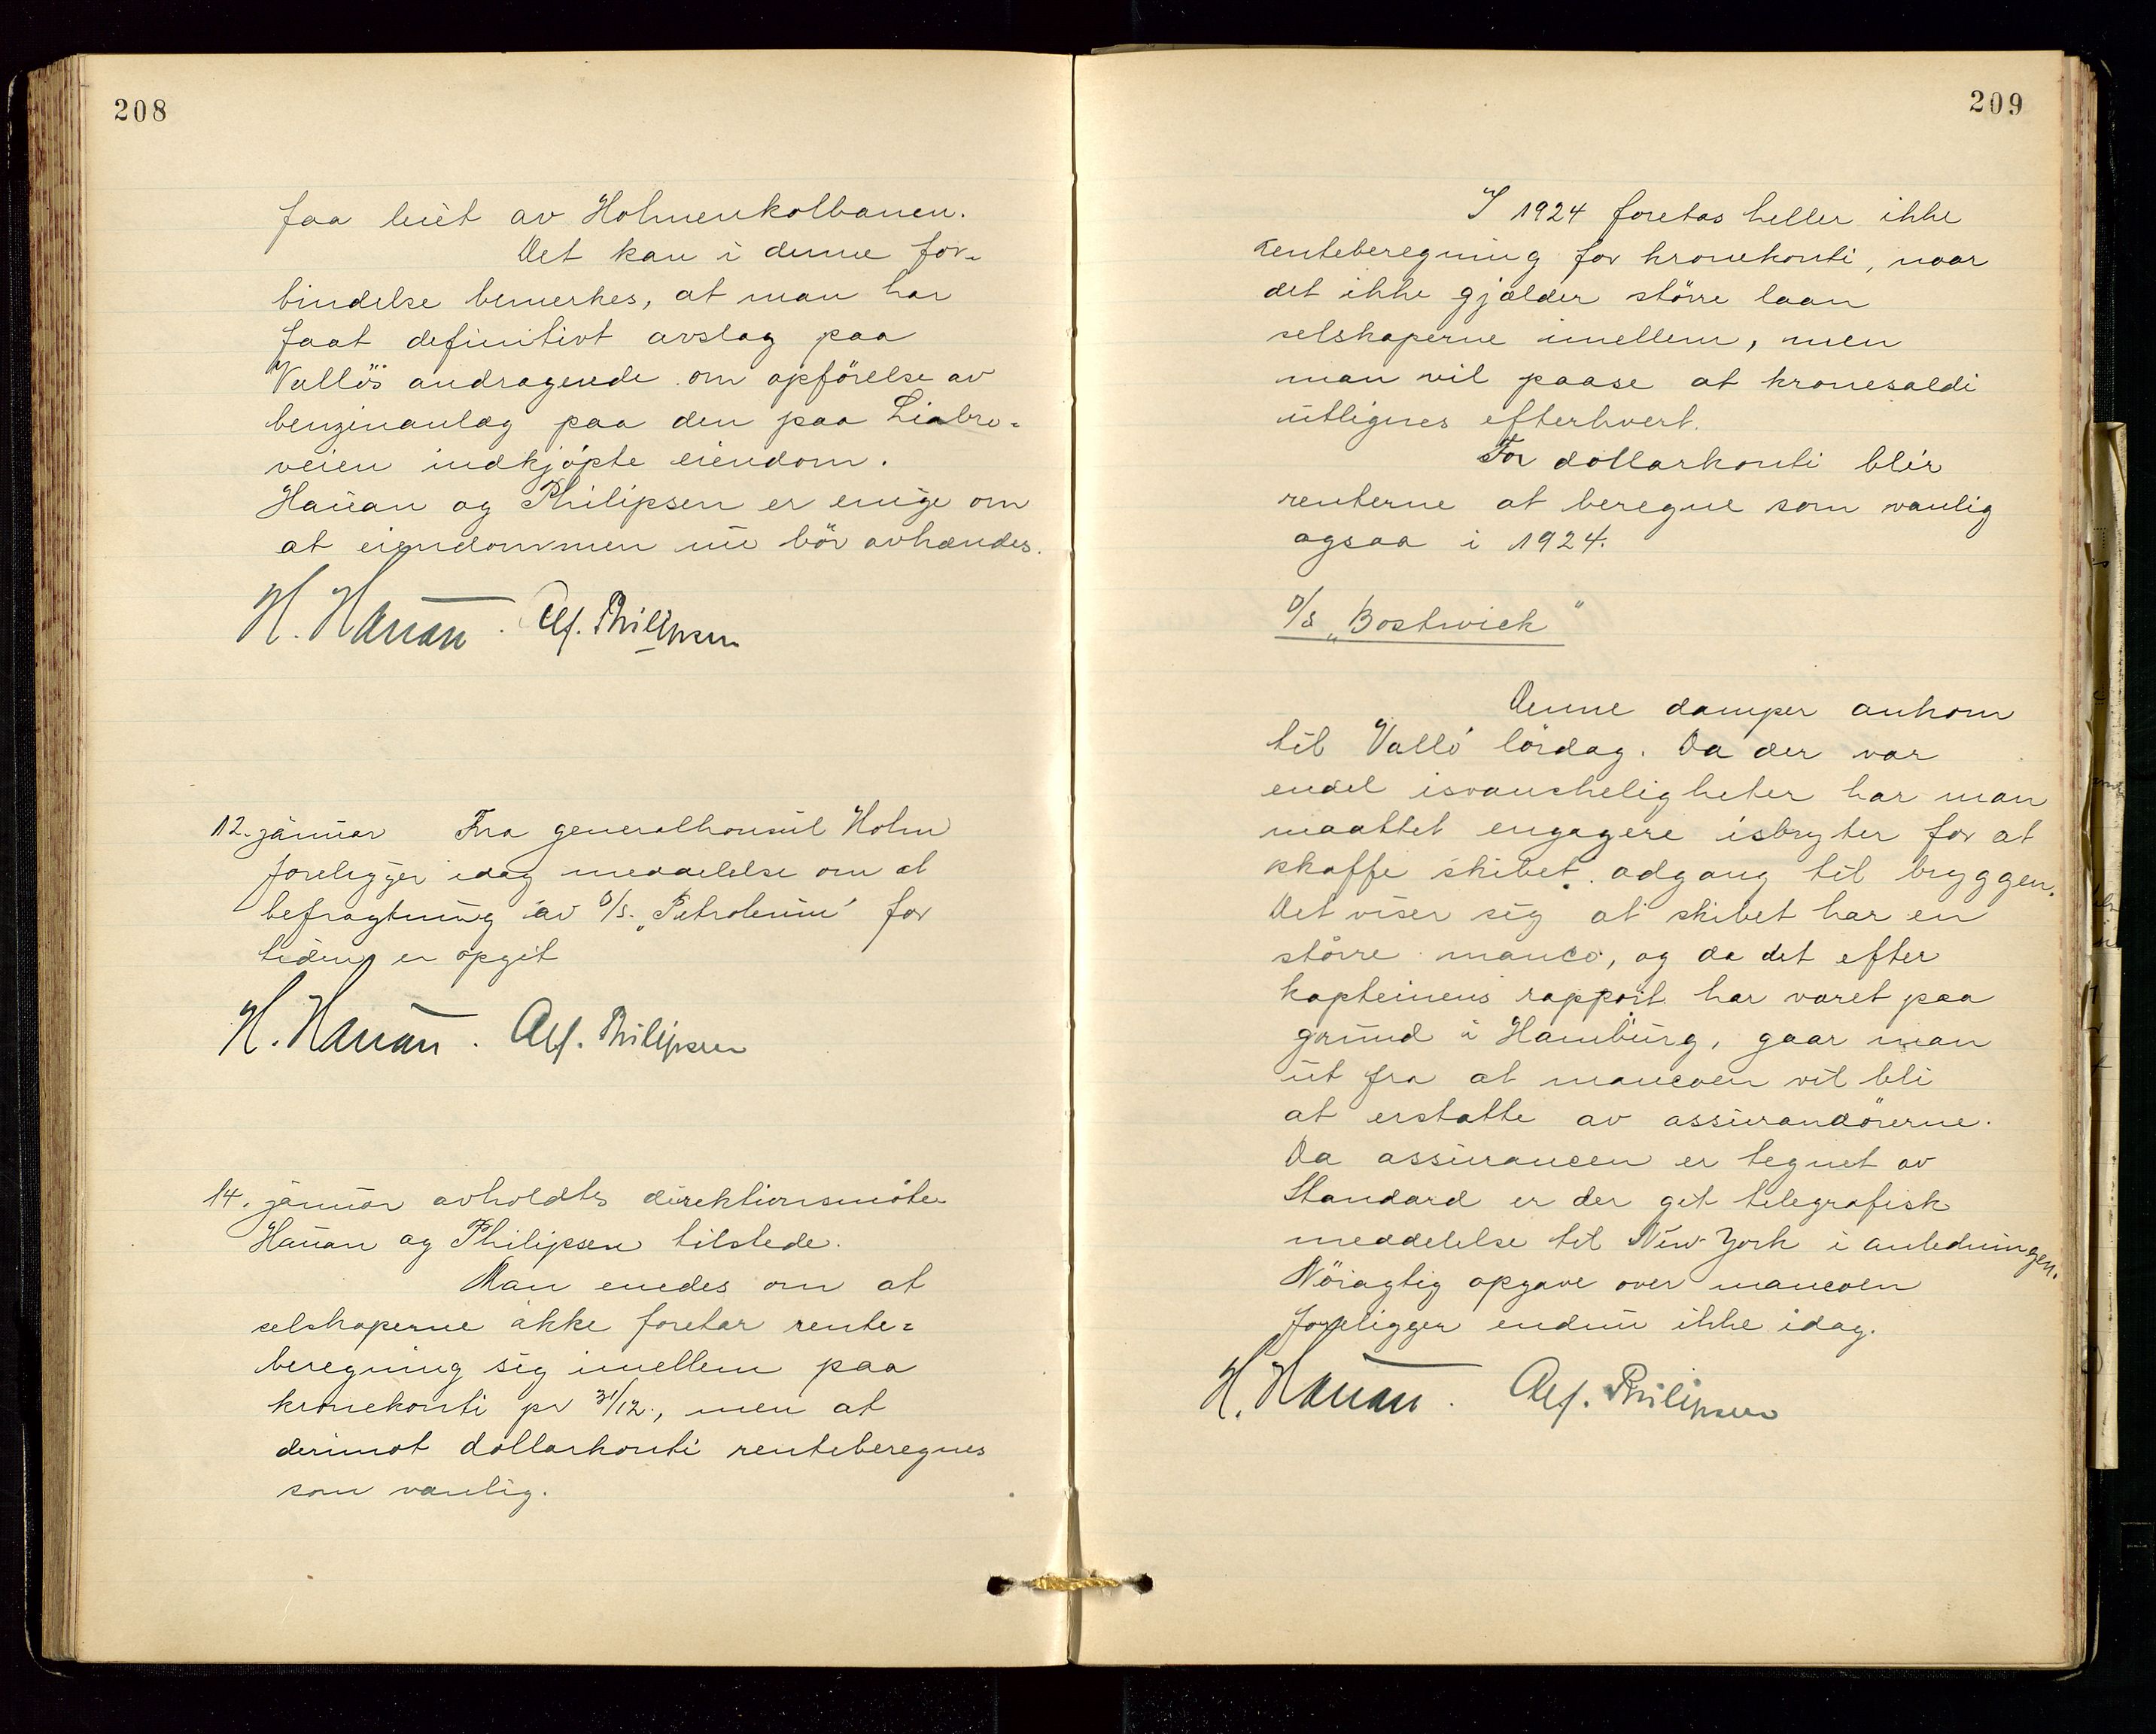 208
faa leiet av Holmenkolbanen.
Det kan i denne for-
bindelse bemerkes, at man har
faat definitivt avslag paa
Vallös andragende om opförelse av
benzinanlæg paa den paa Liabro-
veien indkjøpte eiendom.
Hauan og Philipsen er enige om
at eiendommen nu bör avhændes.
H. Hauan. Alf. Philipsen
12. januar Fra generalkonsul Holm
foreligger idag meddelelse om at
befragtning av D/S. „Petroleum" for
tiden er opgit
H. Hauan. Alf. Philipsen
14. januar avholdtes direktionsmöte
Hauan og Philipsen tilstede.
Man enedes om at
selskaperne ikke foretar rente=
beregning sig imellem paa
kronekonti pr 31/12., men at
derimot dollarkonti renteberegnes
som vanlig.
209
I 1924 foretas heller ikke
renteberegning for kronekonti, naar
det ikke gjælder större laan
selskaperne imellem, men
man vil paase at kronesaldi
utlignes efterhvert.
For dollarkonti blir
renterne at beregne som vanlig
ogsaa i 1924.
D/S „Bostwick"
Denne damper ankom
til Vallö lördag. Da der var
endel isvanskeligheter har man
maattet engagere isbryter for at
skaffe skibet adgang til bryggen.
Det viser sig at skibet har en
större manco, og da det efter
kapteinens rapport har været paa
grund i Hamburg, gaar man
ut fra at mancoen vil bli
at erstatte av assurandörerne.
Da assurancen er tegnet av
Standard er der git telegrafisk
meddelelse til New-York i anledningen.
Nöiagtig opgave over mancoen
foreligger endnu ikke idag.
H. Hauan. Alf. Philipsen